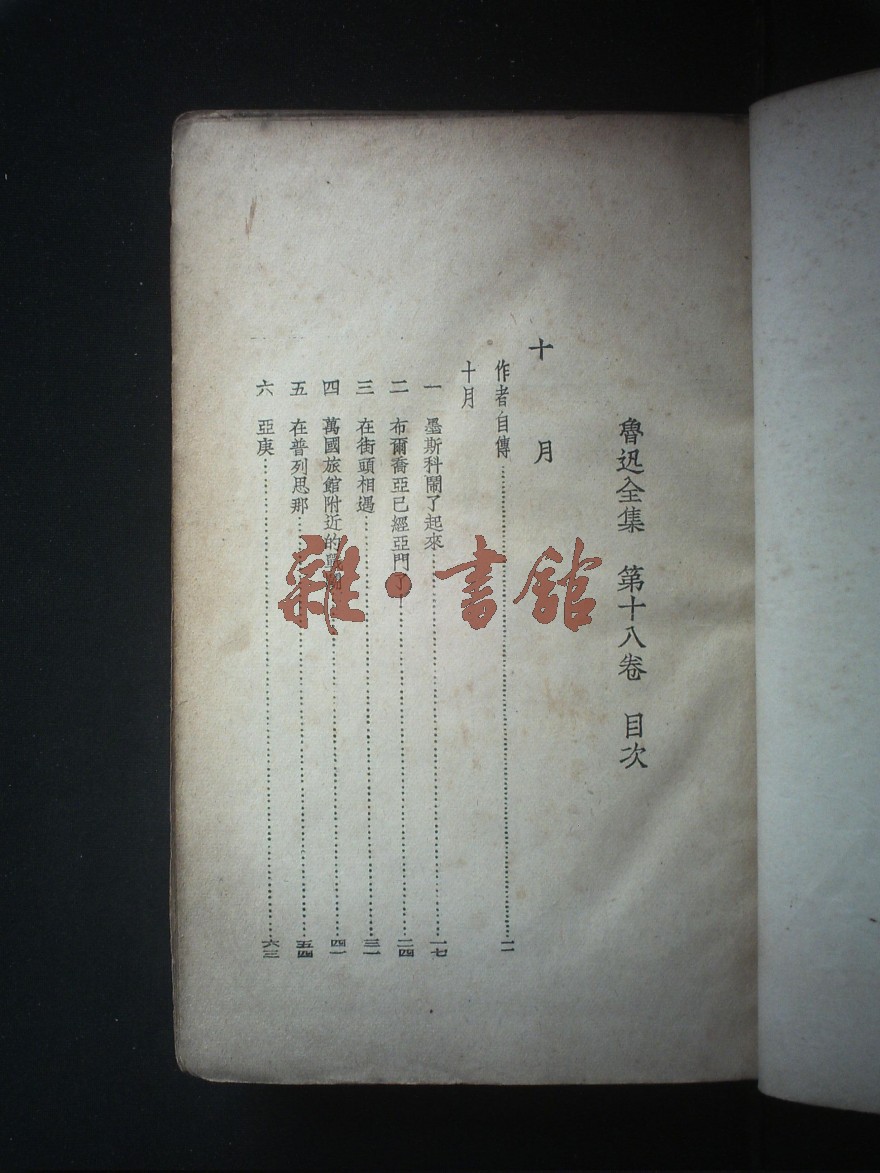 魯迅全集 第十八卷 目次
十 月
作者自傳……一一
十月
一 墨斯科鬧了起來……一七
二 布爾喬亞已經亞門了……二四
三 在街頭相遇……三一
四 萬國旅館附近的……四一
五 在普列思那……五四
六 亞庚……六三
雜·書館